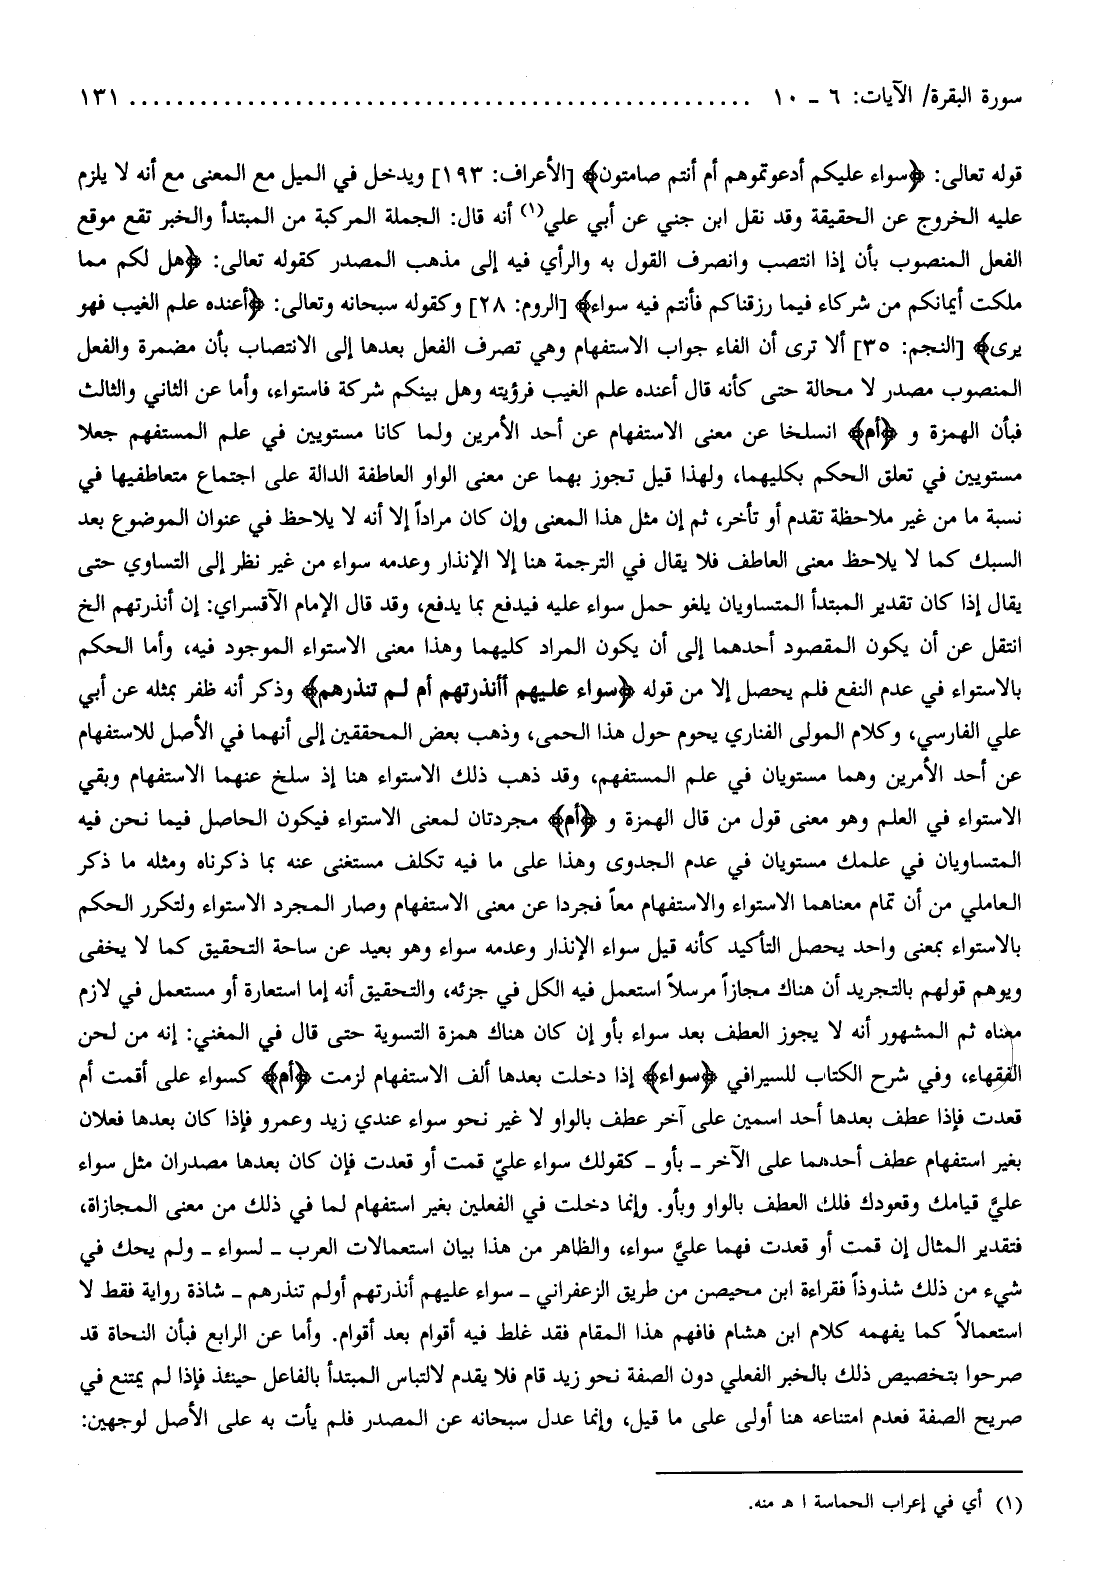 سورة البقرة/ الآيات: ٦ ـ ١٠ ..................................................... ١٣١
قوله تعالى: ﴿سواء عليكم أدعوتموهم أم أنتم صامتون﴾ [الأعراف: ١٩٣] ويدخل في الميل مع المعنى مع أنه لا يلزم
عليه الخروج عن الحقيقة وقد نقل ابن جني عن أبي علي(١) أنه قال: الجملة المركبة من المبتدأ والخبر تقع موقع
الفعل المنصوب بأن إذا انتصب وانصرف القول به والرأي فيه إلى مذهب المصدر كقوله تعالى: ﴿هل لكم مما
ملكت أيمانكم من شركاء فيما رزقناكم فأنتم فيه سواء﴾ [الروم: ٢٨] وكقوله سبحانه وتعالى: ﴿أعنده علم الغيب فهو
يرى﴾ [النجم: ٣٥] ألا ترى أن الفاء جواب الاستفهام وهي تصرف الفعل بعدها إلى الانتصاب بأن مضمرة والفعل
المنصوب مصدر لا محالة حتى كأنه قال أعنده علم الغيب فرؤيته وهل بينكم شركة فاستواء، وأما عن الثاني والثالث
فبأن الهمزة و ﴿أم﴾ انسلخا عن معنى الاستفهام عن أحد الأمرين ولما كانا مستويين في علم المستفهم جعلا
مستويين في تعلق الحكم بكليهما، ولهذا قيل تجوز بهما عن معنى الواو العاطفة الدالة على اجتماع متعاطفيها في
نسبة ما من غير ملاحظة تقدم أو تأخر، ثم إن مثل هذا المعنى وإن كان مراداً إلا أنه لا يلاحظ في عنوان الموضوع بعد
السبك كما لا يلاحظ معنى العاطف فلا يقال في الترجمة هنا إلا الإنذار وعدمه سواء من غير نظر إلى التساوي حتى
يقال إذا كان تقدير المبتدأ المتساويان يلغو حمل سواء عليه فيدفع بما يدفع، وقد قال الإمام الآقسراي: إن أنذرتهم الخ
انتقل عن أن يكون المقصود أحدهما إلى أن يكون المراد كليهما وهذا معنى الاستواء الموجود فيه، وأما الحكم
بالاستواء في عدم النفع فلم يحصل إلا من قوله ﴿سواء عليهم أأنذرتهم أم لم تنذرهم﴾ وذكر أنه ظفر بمثله عن أبي
علي الفارسي، وكلام المولى الفناري يحوم حول هذا الحمى، وذهب بعض المحققين إلى أنهما في الأصل للاستفهام
عن أحد الأمرين وهما مستويان في علم المستفهم، وقد ذهب ذلك الاستواء هنا إذ سلخ عنهما الاستفهام وبقي
الاستواء في العلم وهو معنى قول من قال الهمزة و ﴿أم﴾ مجردتان لمعنى الاستواء فيكون الحاصل فيما نحن فيه
المتساويان في علمك مستويان في عدم الجدوى وهذا على ما فيه تكلف مستغنى عنه بما ذكرناه ومثله ما ذكر
العاملي من أن تمام معناهما الاستواء والاستفهام معاً فجردا عن معنى الاستفهام وصار المجرد الاستواء ولتكرر الحكم
بالاستواء بمعنى واحد يحصل التأكيد كأنه قيل سواء الإنذار وعدمه سواء وهو بعيد عن ساحة التحقيق كما لا يخفى
ويوهم قولهم بالتجريد أن هناك مجازاً مرسلاً استعمل فيه الكل في جزئه، والتحقيق أنه إما استعارة أو مستعمل في لازم
معناه ثم المشهور أنه لا يجوز العطف بعد سواء بأو إن كان هناك همزة التسوية حتى قال في المغني: إنه من لحن
الفقهاء، وفي شرح الكتاب للسيرافي ﴿سواء﴾ إذا دخلت بعدها ألف الاستفهام لزمت ﴿أم﴾ كسواء على أقمت أم
قعدت فإذا عطف بعدها أحد اسمين على آخر عطف بالواو لا غير نحو سواء عندي زيد وعمرو فإذا كان بعدها فعلان
بغير استفهام عطف أحدهما على الآخر ـ بأو ـ كقولك سواء عليّ قمت أو قعدت فإن كان بعدها مصدران مثل سواء
عليَّ قيامك وقعودك فلك العطف بالواو وبأو. وإنما دخلت في الفعلين بغير استفهام لما في ذلك من معنى المجازاة،
فتقدير المثال إن قمت أو قعدت فهما عليَّ سواء، والظاهر من هذا بيان استعمالات العرب ـ لسواء ـ ولم يحك في
شيء من ذلك شذوذاً فقراءة ابن محيصن من طريق الزعفراني ـ سواء عليهم أنذرتهم أولم تنذرهم ـ شاذة رواية فقط لا
استعمالاً كما يفهمه كلام ابن هشام فافهم هذا المقام فقد غلط فيه أقوام بعد أقوام. وأما عن الرابع فبأن النحاة قد
صرحوا بتخصيص ذلك بالخبر الفعلي دون الصفة نحو زيد قام فلا يقدم لالتباس المبتدأ بالفاعل حينئذ فإذا لم يمتنع في
صريح الصفة فعدم امتناعه هنا أولى على ما قيل، وإنما عدل سبحانه عن المصدر فلم يأت به على الأصل لوجهين:
(١) أي في إعراب الحماسة ا هـ منه.